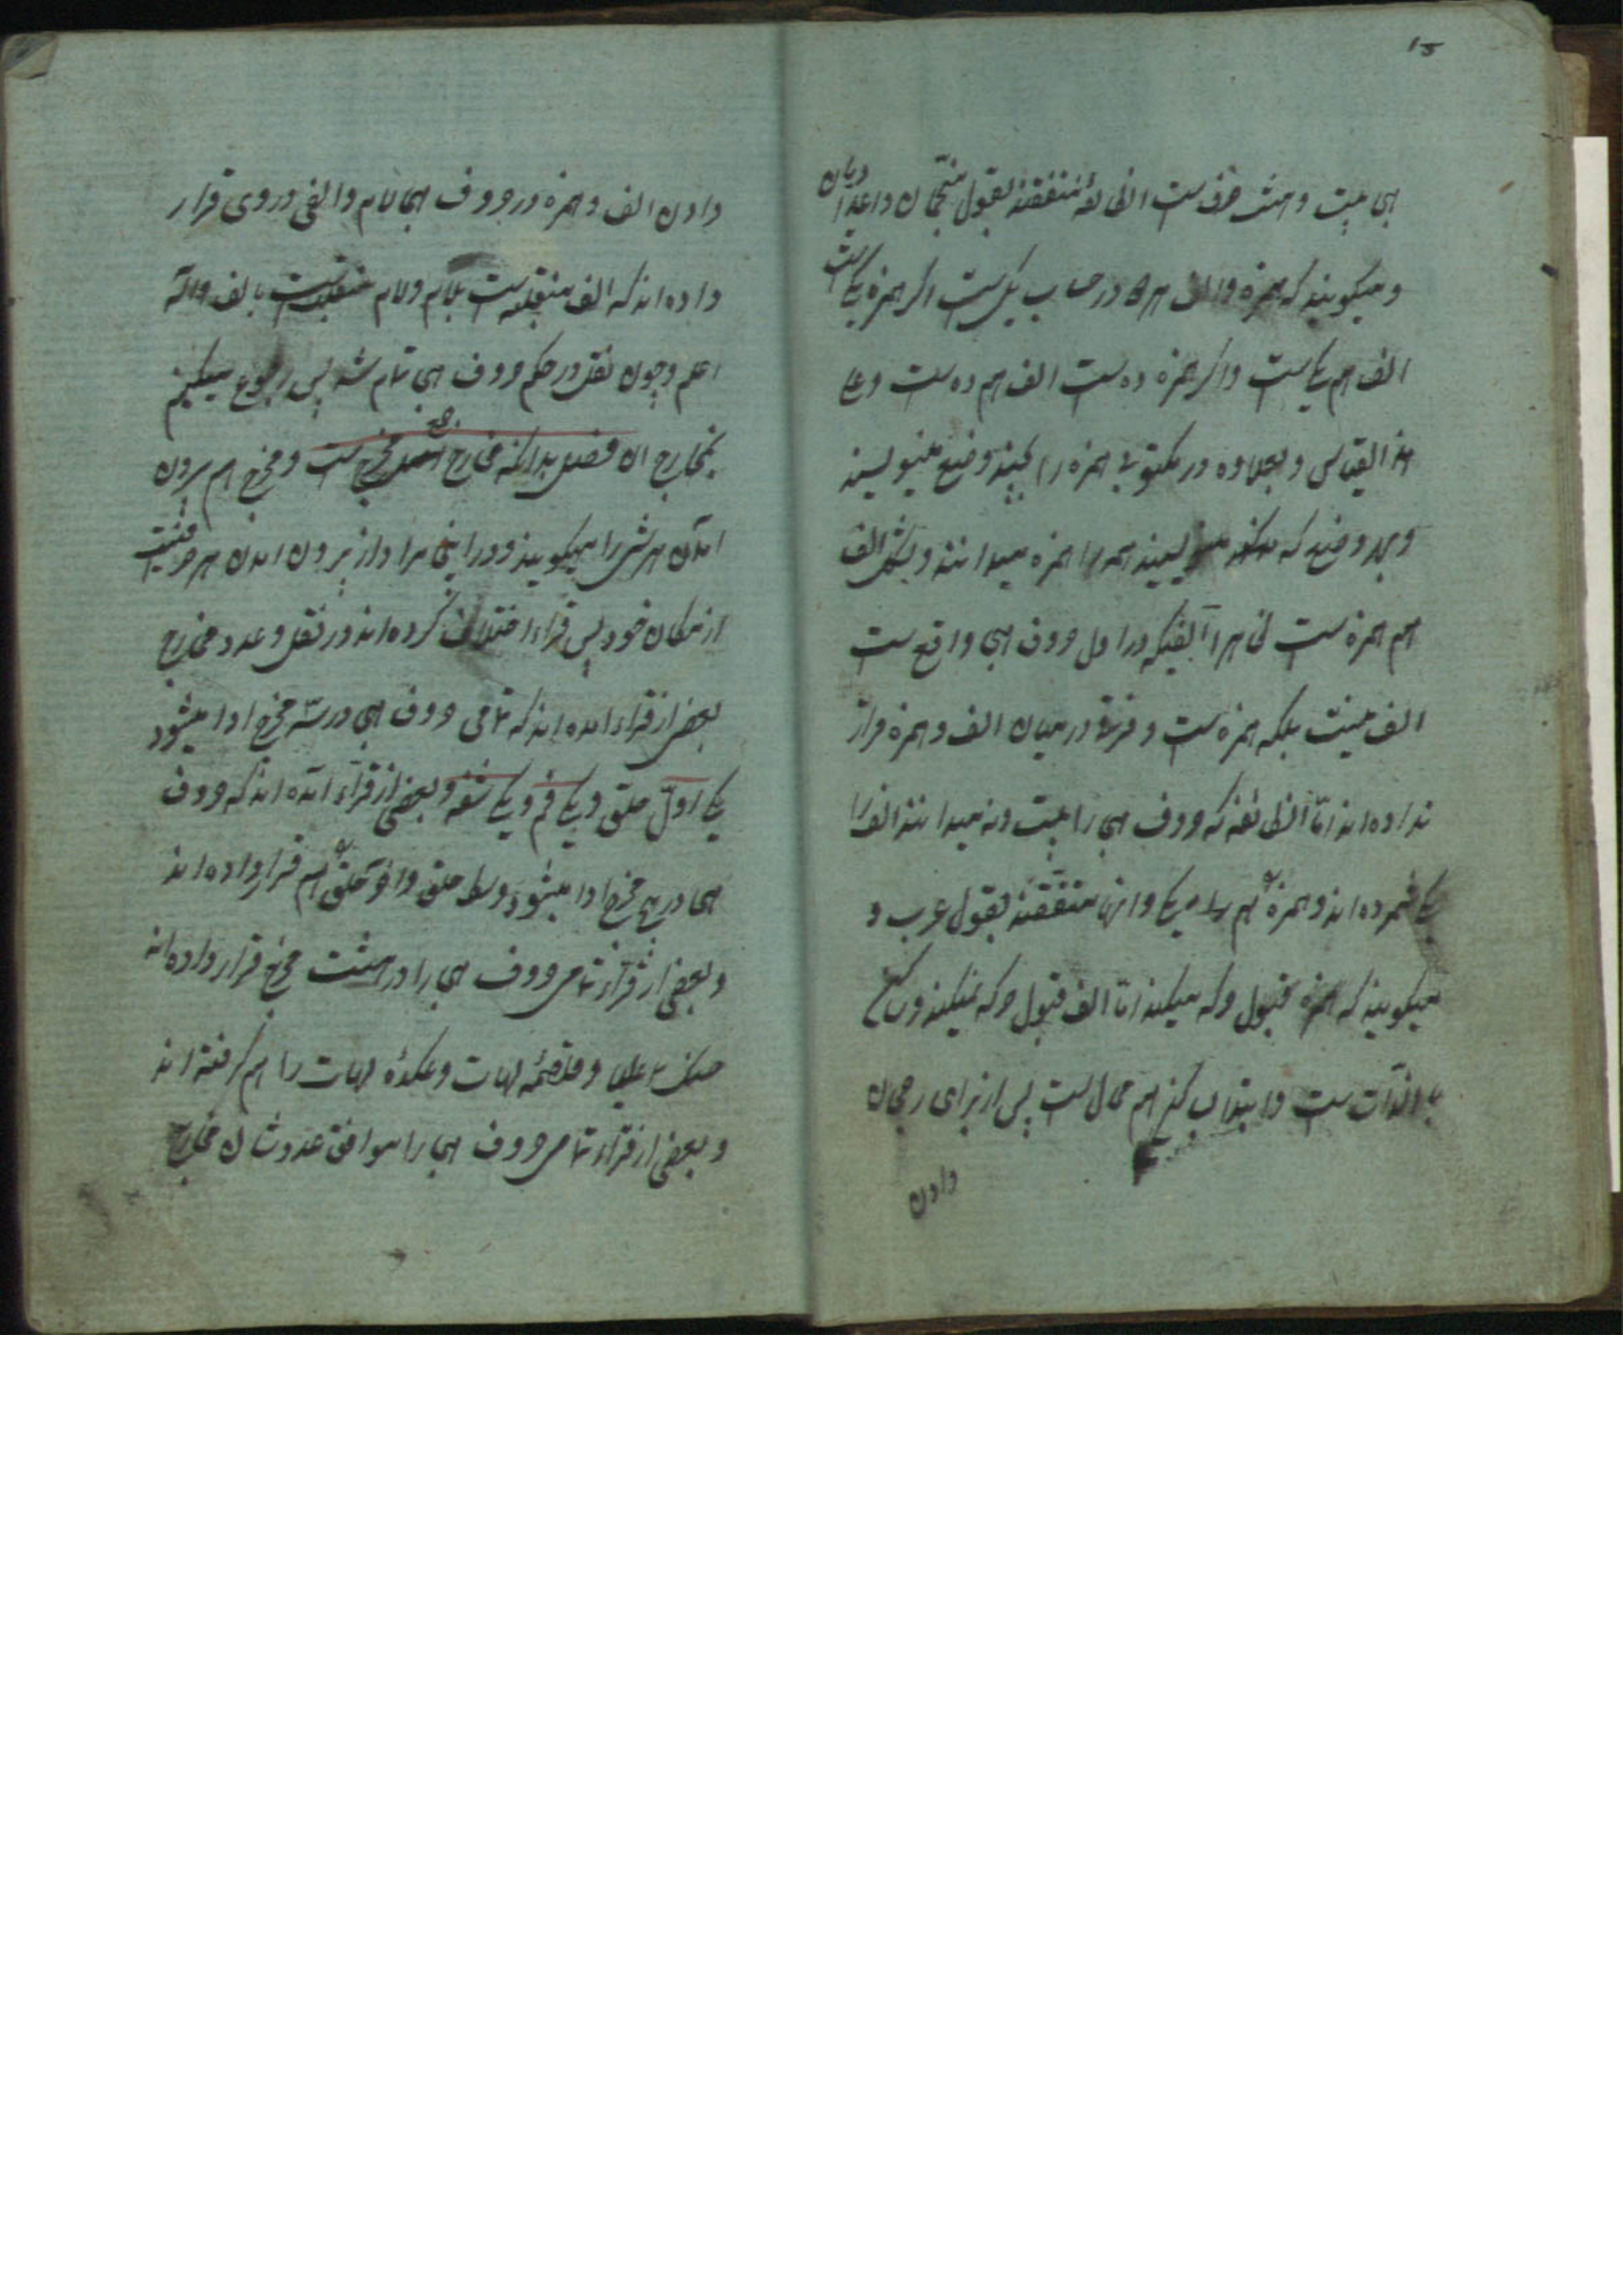 ۱۵
هجا بیست و هشت حرف است انطائفه متفقند بقول منجمان و اعدادیان
و میگویند که همزه و الف هر دو در حساب یکی است اگر همزه یکی است
الف هم یکی است و اگر همزه ده است الف هم ده است و علی
هذا القیاس و بعلاوه در مکتوبی همزه را بچند وضع مینویسند
و بهر وضع که مینویسند همه را همزه میدانند و بشکل الف
هم همزه است فی هذا آنفیکه در اول حروف هجا واقع است
الف نیست بلکه همزه است و فرقی در میان الف و همزه قرار
نداده اند اما انطائفه که حروف هجا را بیست و نه میدانند الف را
یکی شمرده اند و همزه هم را یکی و اینها متفقند بقول عرب و
میگویند که همزه قبول حرکه میکند اما الف قبول حرکه نمیکند و ساکن
بالذات است و ابتدا بساکن هم محال است پس از برای رجحان
دادن
دادن الف و همزه در حروف هجا لام و الفی در وی قرار
داده اند که الف منقلب است بلام و لام منقلب است بالف والله
اعلم و چون نقل در حکم حروف هجا تمام شد پس رجوع میکنیم
بمخارج ان فصل بدانکه مخارج جمع مخرج است و مخرج هم بیرون
امدن هر شی را میگویند و در اینجا مراد از بیرون امدن هر حرفیست
از مکان خود پس قراء اختلاف کرده اند در نقل و عدد مخارج
بعضی از قراء امده اند که تمامی حروف هجا در سه مخرج ادا میشود
یکی اول حلق و یکی فم و یکی شفه و بعضی از قراء آمده اند که حروف
هجا در پنج مخرج ادا میشود وسط حلق و اخر حلق هم قرار داده اند
و بعضی از قراء تمامی حروف هجا را در هشت مخرج قرار داده اند
حنک علیا و قلقمه لهات و عکده لهات را هم گرفته اند
و بعضی از قراء تمامی حروف هجا را موافق عدد شان مخارج